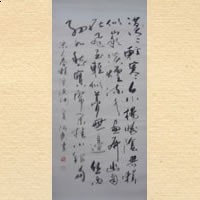 漠漠輕寒上小樓曉陰無賴
似窮秋淡煙流水畫屏幽自
在飛花輕似夢無邊絲雨
細如愁寶簾閒掛小銀鉤